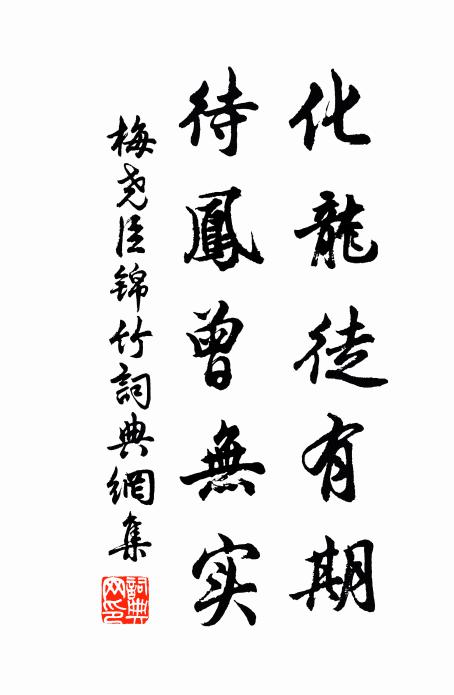 化龍徒有期
待鳳曾無实
梅尧臣锦竹詞典網集
詞典網印